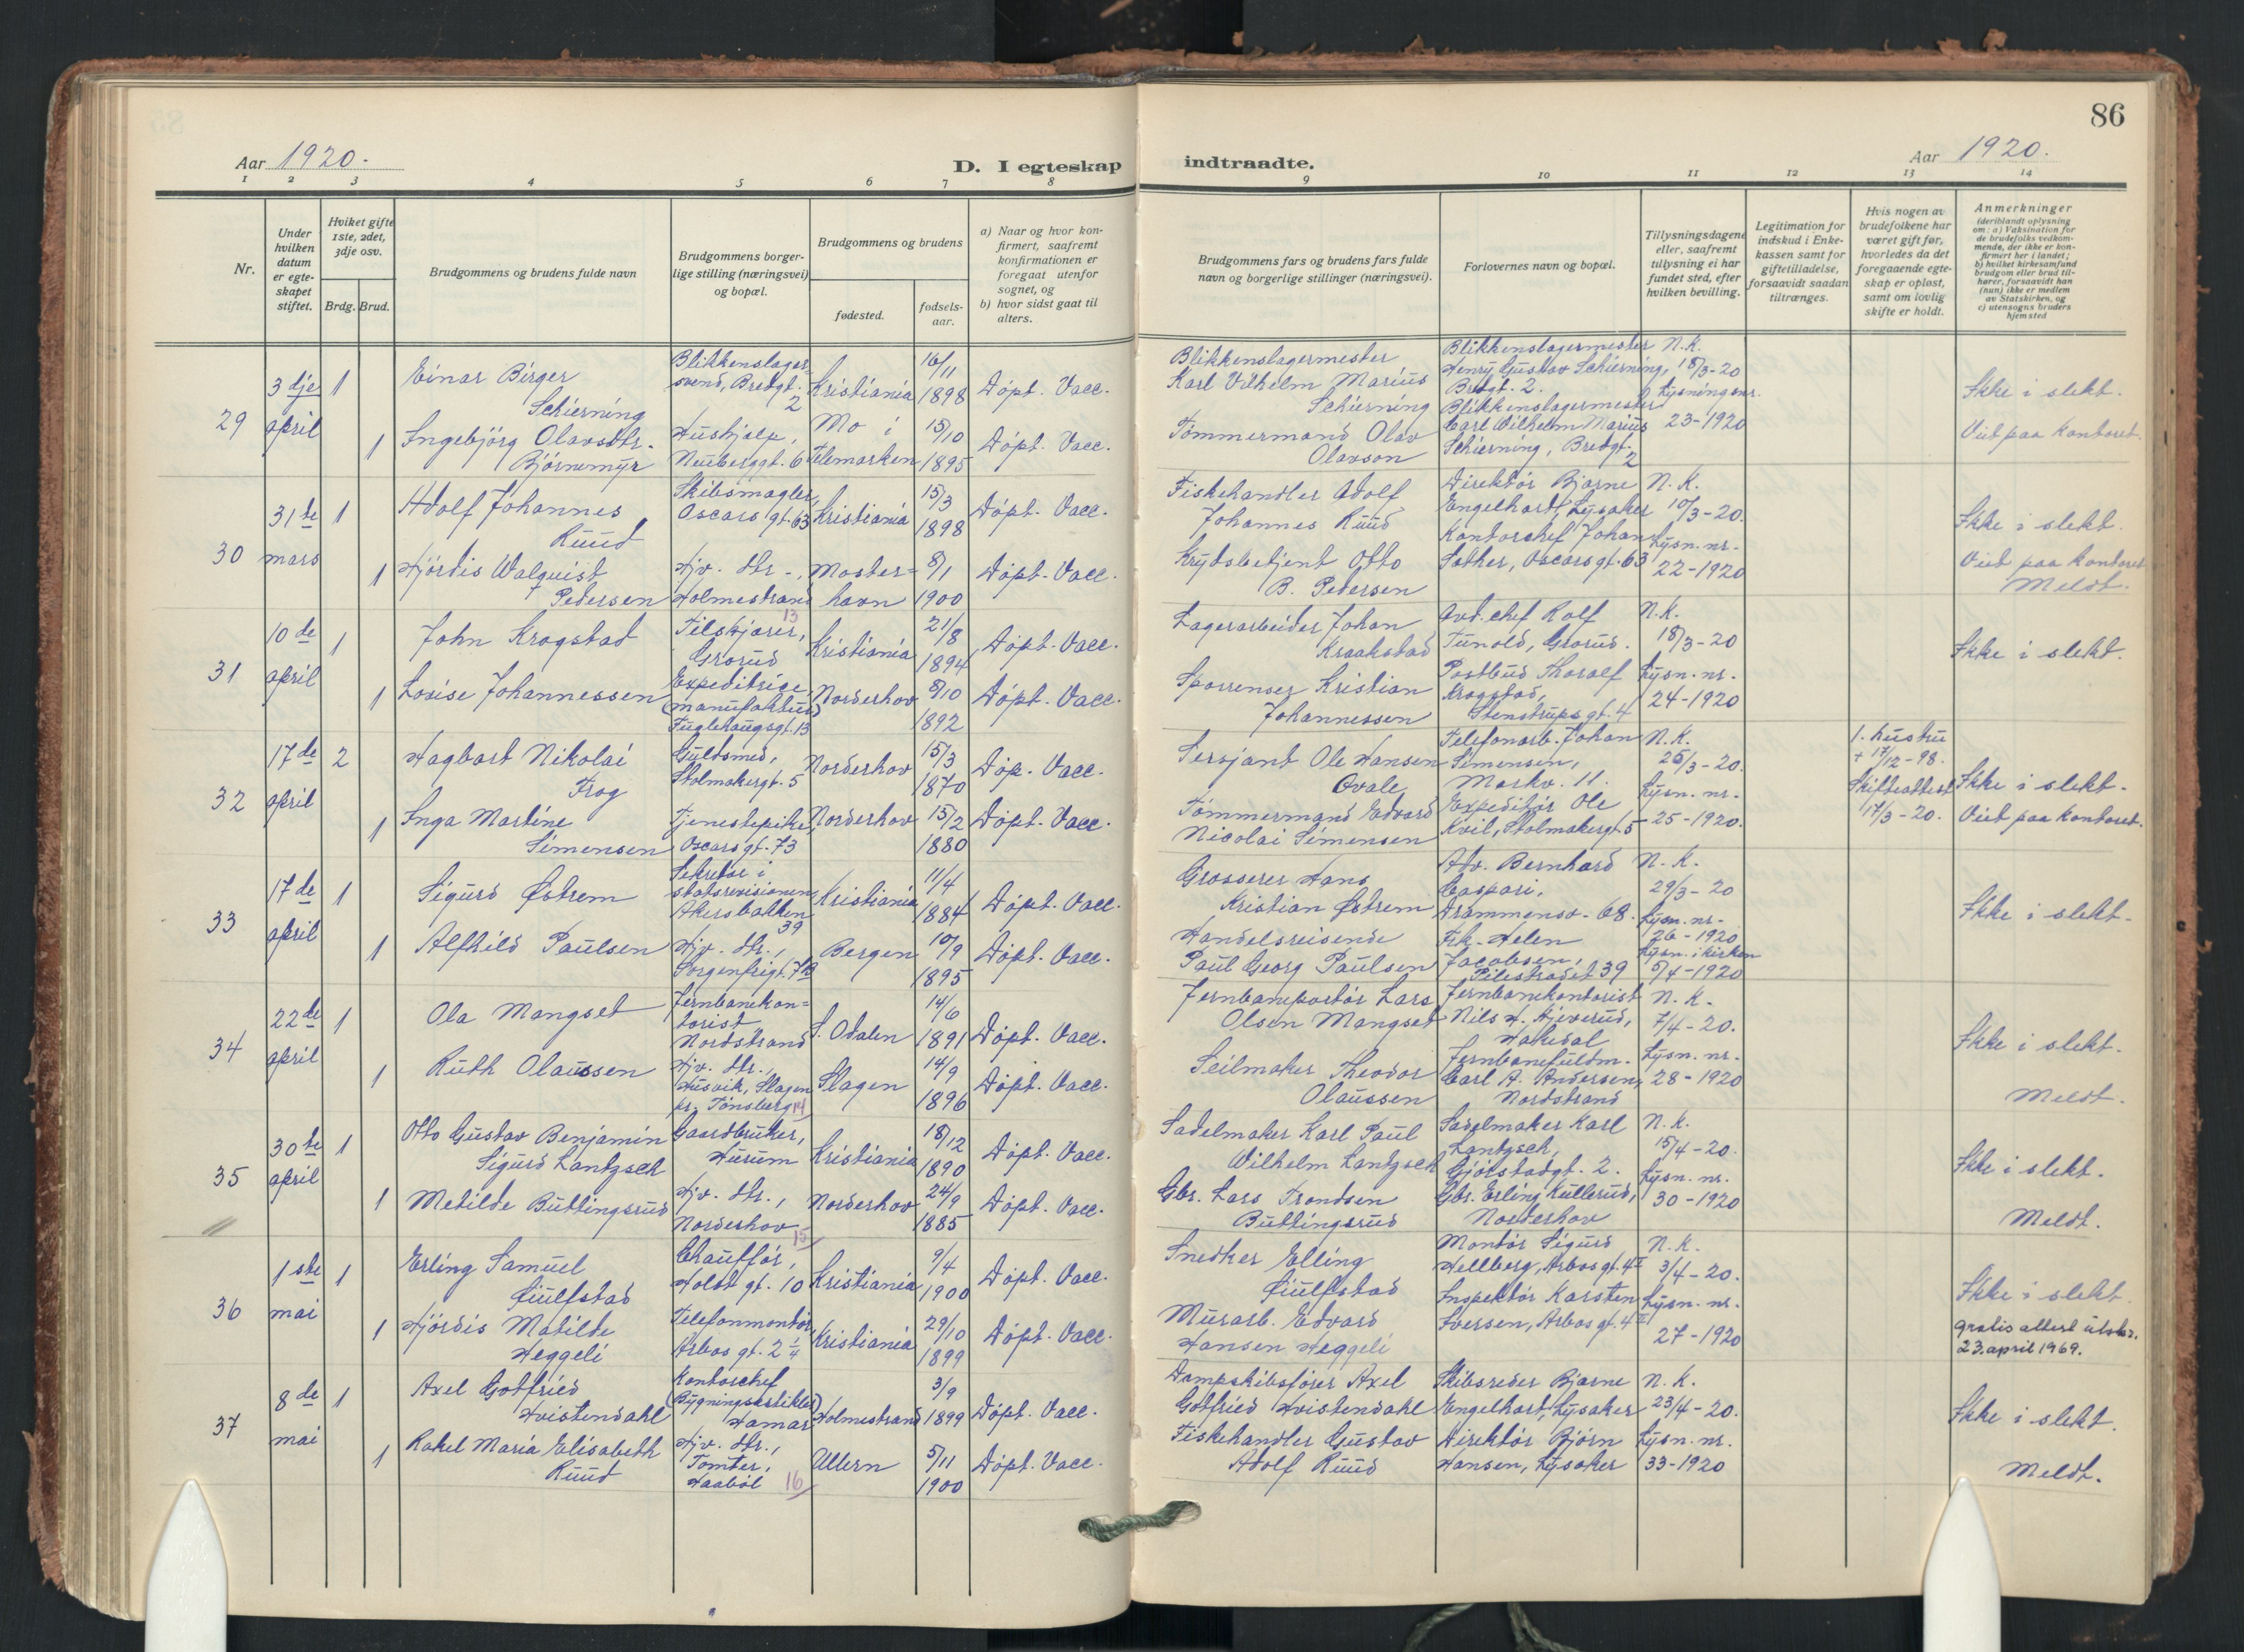 86
Aar 1920.
D. I egteskap indtraadte.
Aar 1920.
1 2 3 4 5 6 7 8 9 10 11 12 13 14
Nr.
Under hvilken datum er egte-skapet stiftet.
Hviket gifte 1ste, 2det, 3dje osv.
Brdg. Brud.
Brudgommens og brudens fulde navn
Brudgommens borger-lige stilling (næringsvei) og bopæl.
Brudgommens og brudens
fødested.
fødsels-aar.
a) Naar og hvor kon-firmert, saafremt konfirmationen er foregaat utenfor sognet, og
b) hvor sidst gaat til alters.
Brudgommens fars og brudens fars fulde navn og borgerlige stillinger (næringsvei).
Forlovernes navn og bopæl.
Tillysningsdagene eller, saafremt tillysning ei har fundet sted, efter hvilken bevilling.
Legitimation for indskud i Enke-kassen samt for giftetilladelse, forsaavidt saadan tiltrænges.
Hvis nogen av brudefolkene har været gift før, hvorledes da det foregaaende egte-skap er opløst, samt om lovlig skifte er holdt.
Anmerkninger
(deriblandt oplysning om: a) Vaksination for de brudefolks vedkom-mende, der ikke er kon-firmert her i landet; b) hvilket kirkesamfund brudgom eller brud til-hører, forsaavidt han (hun) ikke er medlem av Statskirken, og c) utensogns bruders hjemsted
29
3dje april
1
Einar Birger Schierning
Blikkenslager-svend, Bredgt. 2
Kristiania
16/11 1898
Døpt. Vacc.
Blikkenslagermester Karl Vilhelm Marius Schierning
Blikkenslagermester Henry Gustav Schierning, Bredgt. 2.
N.K. 18/3-20
Lysningsnr. 23-1920
Ikke i slekt.
Viet paa kontoret.
1
Ingebjörg Olavsdtr. Bjørnemyr
Hushjelp, Neuberggt. 6
Mo i Telemarken
15/10 1895
Døpt. Vacc.
Tømmermand Olav Olavson
Blikkenslagermester Carl Wilhelm Marius Schierning, Bredgt. 2
30
31te mars
1
Adolf Johannes Ruud
Skibsmægler, Oscars gt. 63
Kristiania
15/3 1898
Døpt. Vacc.
Fiskehandler Adolf Johannes Ruud
Direktør Bjarne Engelhart, Lysaker
N.K. 10/3-20.
Lysn. nr. 22-1920
Ikke i slekt.
Viet paa kontoret
Meldt.
1
Hjørdis Walquist Pedersen
Hjv. dtr., Holmestrand
13
Moster-havn
8/1 1900
Døpt. Vacc.
Krydsbetjent Otto B. Pedersen
Kontorchef Johan Sæther, Oscarsgt. 63
31
10de april
1
John Krogstad
Filskjærer, Grorud
Kristiania
21/8 1894
Døpt. Vacc.
Lagerarbeider Johan Kraakstad
Avd. chef Rolf Tunold, Grorud.
N.K. 18/3-20
Lysn. nr. 24-1920
Ikke i slekt.
1
Lovise Johannessen
Expeditrice, (manufaktur) Fuglehaugsgt. 13
Norderhov
8/10 1892
Døpt. Vacc.
Sporrenser Kristian Johannessen
Postbud Thoralf Krogstad, Stenstrups gt. 4
32
17de april
2
Hagbart Nikolai Frog
Guldsmed, Stolmakergt. 5
Norderhov
15/3 1870
Døp. Vacc.
Sersjant Ole Hansen Ovale
Telefonarb. Johan Simensen, Markv. 11.
N.K. 25/3-20.
Lysn. nr. 25-1920.
1. hustru + 17/12-98.
Skifteattest 17/3-20.
Ikke i slekt.
Viet paa kontoret.
1
Inga Martine Simensen
Tjenestepike, Oscarsgt. 73
Norderhov
15/2 1880
Døpt. Vacc.
Tømmermand Edvard Nicolai Simensen
Expeditør Ole Kvil, Stolmakergt. 5
33
17de april
1
Sigurd Østrem
Sekretær i statsrevisionen, Akersbakken 39
Kristiania
11/4 1884
Døpt. Vacc.
Grosserer Hans Kristian Østrem
Adv. Bernhard Caspari, Drammensv. 68.
N.K. 29/3-20
Lysn. nr. 26-1920
Lysn. i kirken 5/4-1920
Ikke i slekt.
1
Alfhild Paulsen
Hjv. dtr., Sorgenfrigt. 7B
Bergen
10/9 1895
Døpt. Vacc.
Handelsreisende Paul Georg Paulsen
Frk. Helen Jacobsen, Pilestrædet 39
34
22de april
1
Ola Mangset
Jernbanekon-torist Nordstrand
S. Odalen
14/6 1891
Døpt. Vacc.
Jernbaneportør Lars Olsen Mangset
Jernbanekontorist Nils H. Hjeverud, Hakedal
N.K. 7/4-20.
Lysn. nr. 28-1920
Ikke i slekt.
Meldt.
1
Ruth Olaussen
Hjv. dtr., Husvik, Slagen pr. Tønsberg
14
Slagen
14/9 1896
Døpt. Vacc.
Seilmaker Theodor Olaussen
Jernbanefuldm. Carl A. Andersen, Nordstrand
35
30te april
1
Otto Gustav Benjamin Sigurd Lantzsch
Gaardbruker, Hurum
Kristiania
18/12 1890
Døpt. Vacc.
Sadelmaker Karl Paul Wilhelm Lantzsch
Sadelmaker Karl Lantzsch, Gjøtstadgt. 2.
N.K. 15/4-20.
Lysn. nr. 30-1920
Ikke i slekt.
Meldt.
1
Metilde Buttingsrud
Hjv. dtr., Norderhov
15
Norderhov
24/9 1885
Døpt. Vacc.
Gbr. Lars Trondsen Buttingsrud
Gbr. Erling Kullerud, Norderhov
36
1ste mai
1
Erling Samuel Giulfstad
Chauffør, Holdt gt. 10
Kristiania
9/4 1900
Døpt. Vacc.
Snedker Elling Giulfstad
Montør Sigurd Hellberg, Arbos gt. 4 II
N.K. 3/4-20.
Lysn. nr. 27-1920
Ikke i slekt.
gratis attest utskr. 23. april 1969.
1
Hjørdis Matilde Heggeli
Telefonmontør, Arbos gt. 2 1/4
Kristiania
29/10 1899
Døpt. Vacc.
Murarb. Edvard Hansen Heggeli
Inspektør Karsten Iversen, Arbos gt. 4 II
37
8de mai
1
Axel Gotfried Hvistendahl
Kontorchef (Bygningsartikler) Hamar
Holmestrand
3/9 1899
Døpt. Vacc.
Dampskibsfører Axel Gotfried Hvistendahl
Skibsreder Bjarne Engelhart, Lysaker
N.K. 23/4-20.
Lysn. nr. 33-1920
Ikke i slekt.
Meldt.
1
Rakel Maria Elisabeth Ruud
Hjv. dtr., Tomter, Haabøl
16
Ullern
5/11 1900
Døpt. Vacc.
Fiskehandler Gustav Adolf Ruud
Direktør Bjørn Hansen, Lysaker